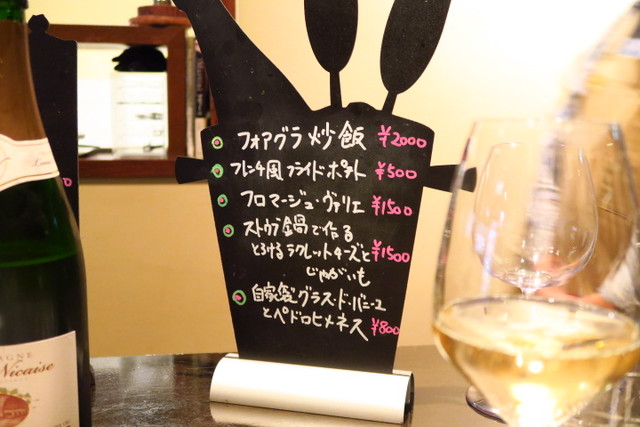 フォアグラ炒飯 ¥2000
フレンチ風フライドポテト ¥500
フロマージュ・ヴァリエ ¥1500
ストウブ鍋で作る
とろけるラクレットチーズと ¥1500
じゃがいも
自家製グラス・ド・バニーユ
とペドロヒメネス ¥800
AGNE
Nicaise